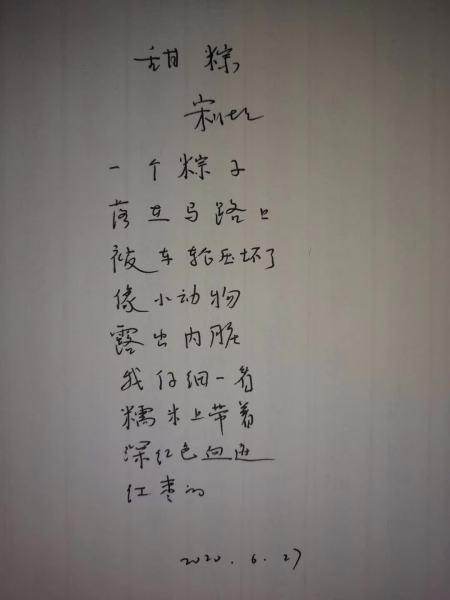 甜粽
宋
一个粽子
落在马路上
被车轮压坏了
像小动物
露出内脏
我仔细一看
糯米上带着
深红色血迹
红枣的
2020.6.27